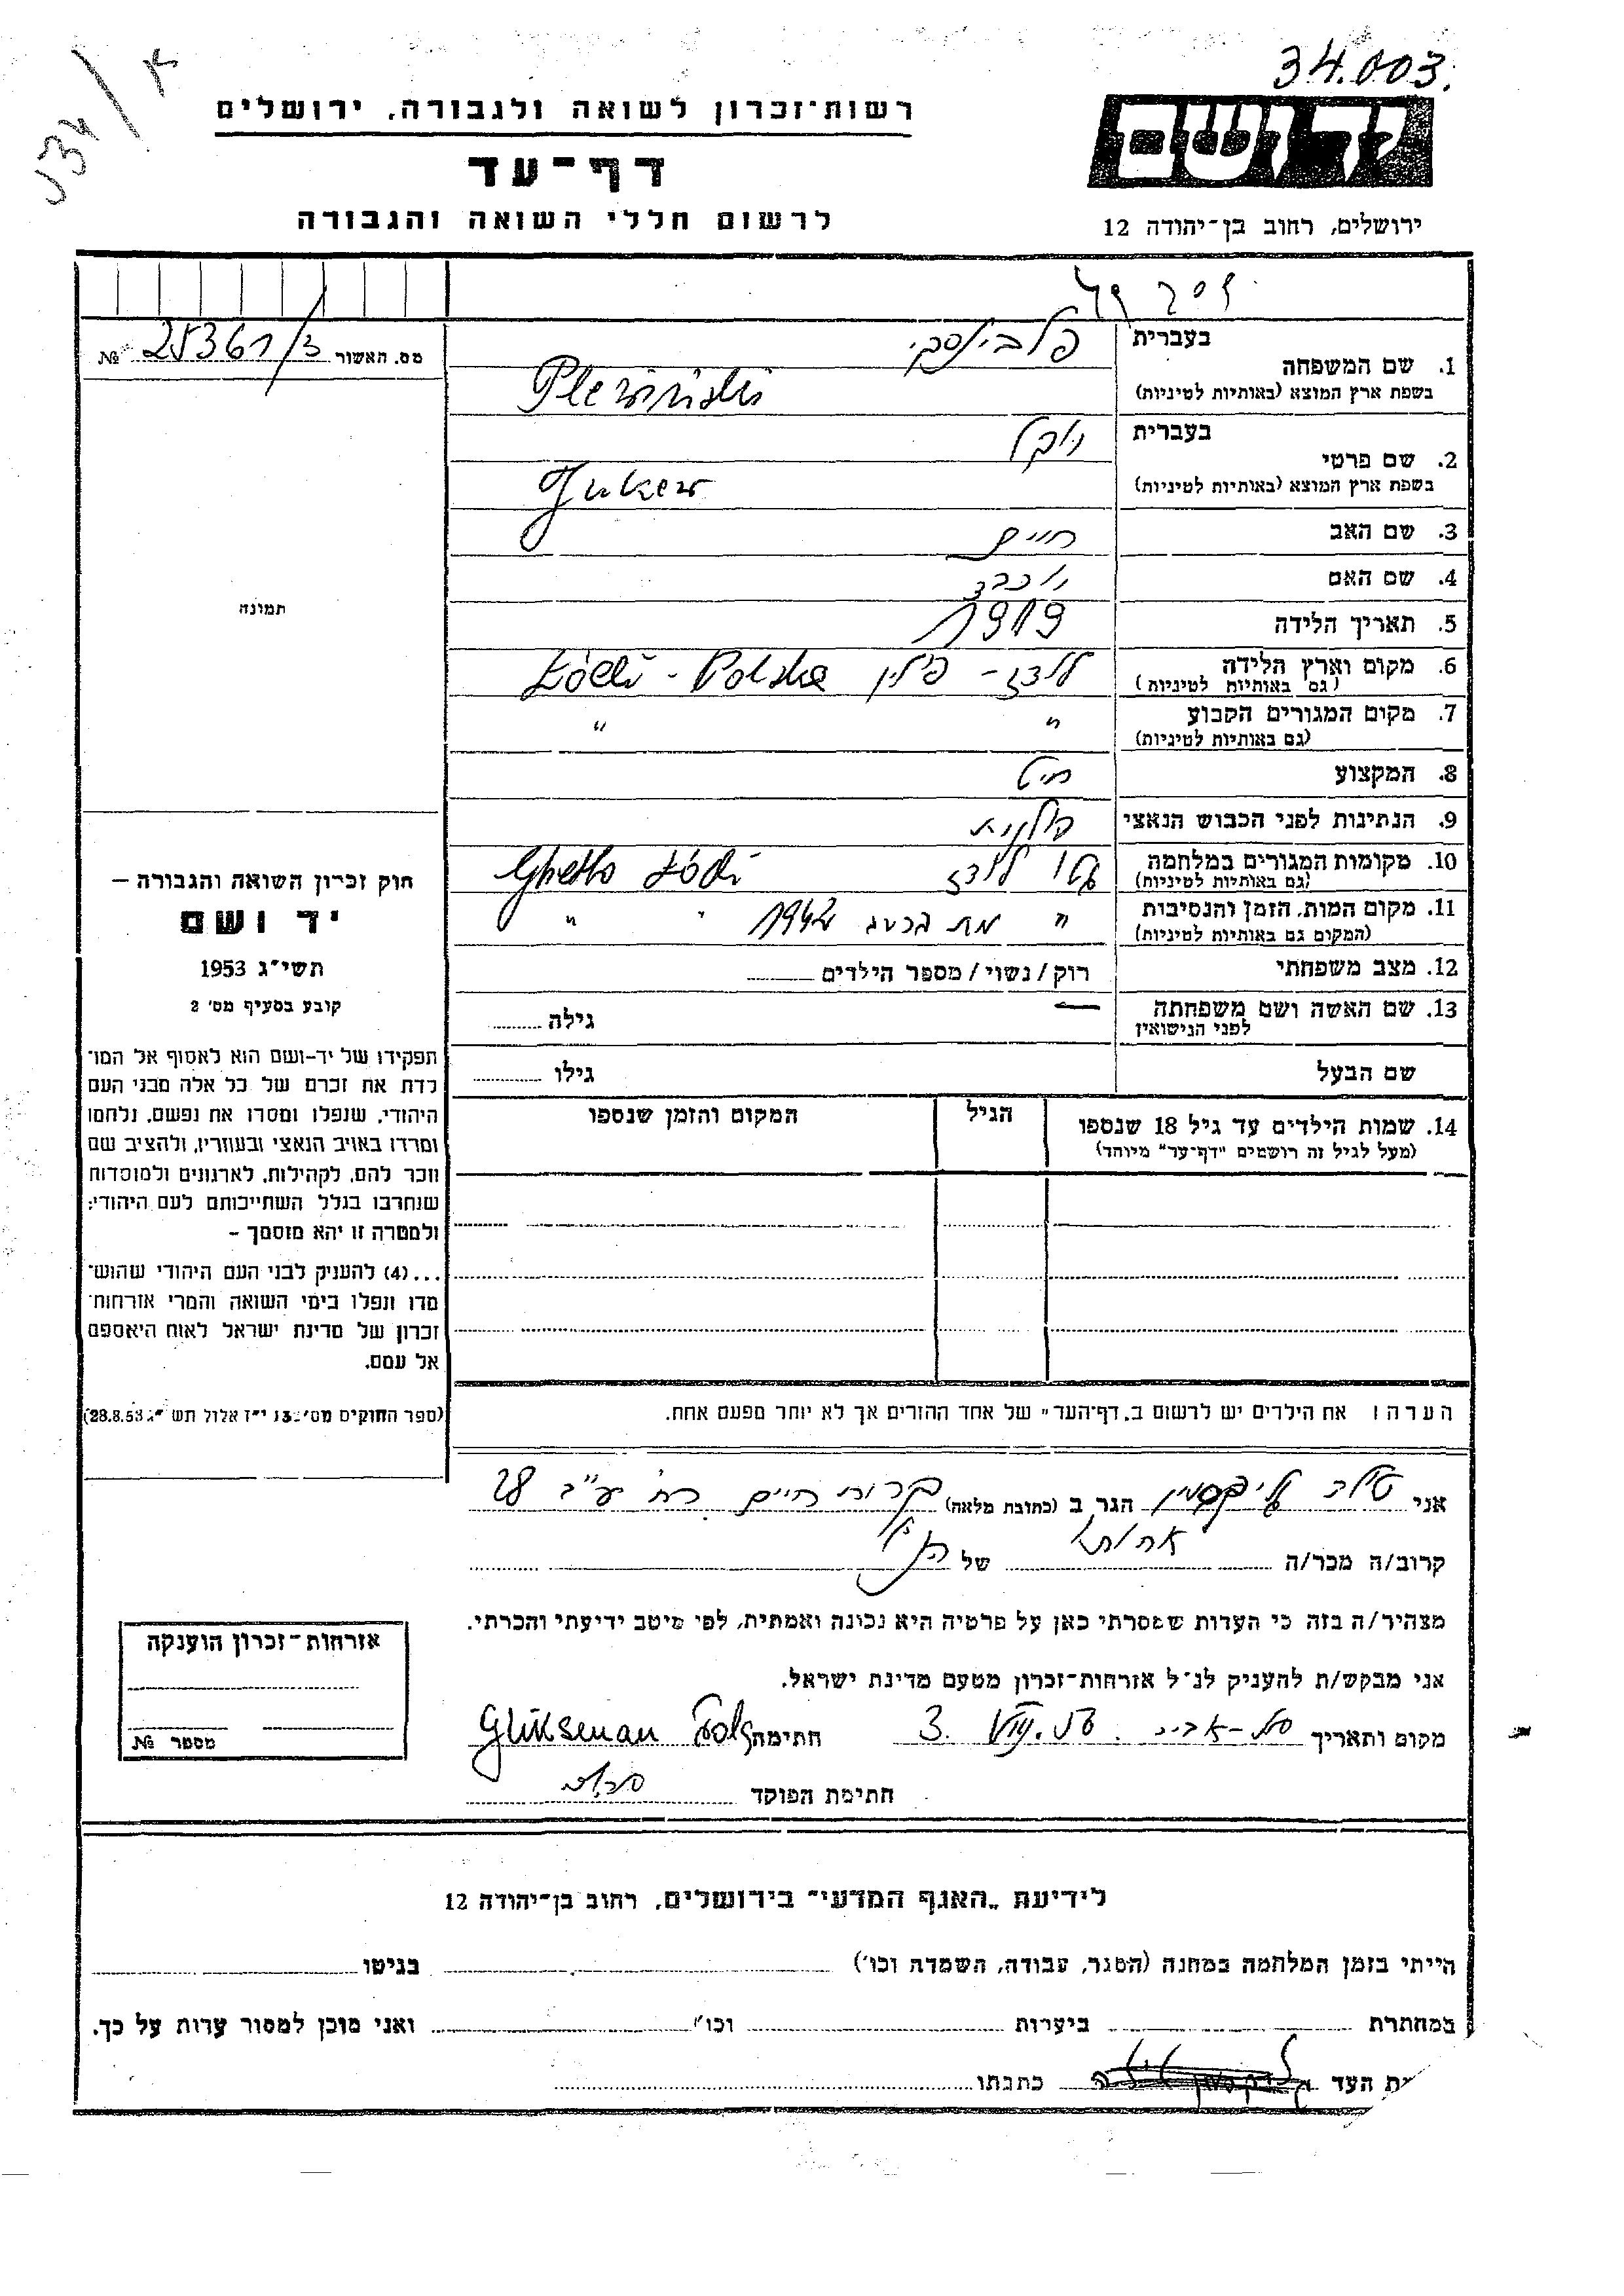 34.003.
רשות־זכרון לשואה ולגבורה, ירושלים
יד ושם
דף־עד
לרשום חללי השואה והגבורה
ירושלים, רחוב בן־יהודה 12
מס. האשור 25361/3 №
בעברית
1. שם המשפחה
בשפת ארץ המוצא (באותיות לטיניות)
בעברית
2. שם פרטי
בשפת ארץ המוצא (באותיות לטיניות)
3. שם האב חיים
4. שם האם
5. תאריך הלידה 1919
6. מקום וארץ הלידה לודז - פולין Łódź - Polska
(גם באותיות לטיניות)
7. מקום המגורים הקבוע " "
(גם באותיות לטיניות)
8. המקצוע חייט
9. הנתינות לפני הכבוש הנאצי פולנית
10. מקומות המגורים במלחמה גטו לודז Ghetto Łódź
(גם באותיות לטיניות)
11. מקום המות, הזמן והנסיבות " מת ברעב 1942 " "
(המקום גם באותיות לטיניות)
12. מצב משפחתי רוק/נשוי/מספר הילדים
13. שם האשה ושם משפחתה — גילה
לפני הנישואין
שם הבעל גילו
14. שמות הילדים עד גיל 18 שנספו הגיל המקום והזמן שנספו
(מעל לגיל זה רושמים "דף־עד" מיוחד)
תמונה
חוק זכרון השואה והגבורה –
יד ושם
תשי"ג 1953
קובע בסעיף מס' 2
תפקידו של יד-ושם הוא לאסוף אל המו־
לדת את זכרם של כל אלה מבני העם
היהודי, שנפלו ומסרו את נפשם, נלחמו
ומרדו באויב הנאצי ובעוזריו, ולהציב שם
וזכר להם, לקהילות, לארגונים ולמוסדות
שנחרבו בגלל השתייכותם לעם היהודי;
ולמטרה זו יהא מוסמך –
...(4) להעניק לבני העם היהודי שהוש־
מדו ונפלו בימי השואה והמרי אזרחות־
זכרון של מדינת ישראל לאות היאספם
אל עמם.
(ספר החוקים מס' 132, י"ז אלול תשי"ג 28.8.53)
הערה: את הילדים יש לרשום ב„דף־העד" של אחד ההורים אך לא יותר מפעם אחת.
אני טולה גליקסמן הגר ב (כתובת מלאה) קרית חיים רח' ע"ב 28
קרוב/ה מכר/ה אחותו של הנ"ל
מצהיר/ה בזה כי העדות שמסרתי כאן על פרטיה היא נכונה ואמתית, לפי מיטב ידיעתי והכרתי.
אני מבקש/ת להעניק לנ"ל אזרחות־זכרון מטעם מדינת ישראל.
מקום ותאריך תל-אביב 3. חתימה Gliksman
חתימת הפוקד
אזרחות־זכרון הוענקה
מספר №
לידיעת „האגף המדעי" בירושלים, רחוב בן־יהודה 12
הייתי בזמן המלחמה במחנה (הסגר, עבודה, השמדה וכו') בגיטו
במחתרת ביערות וכו' ואני מוכן למסור עדות על כך.
ת העד כתבתו